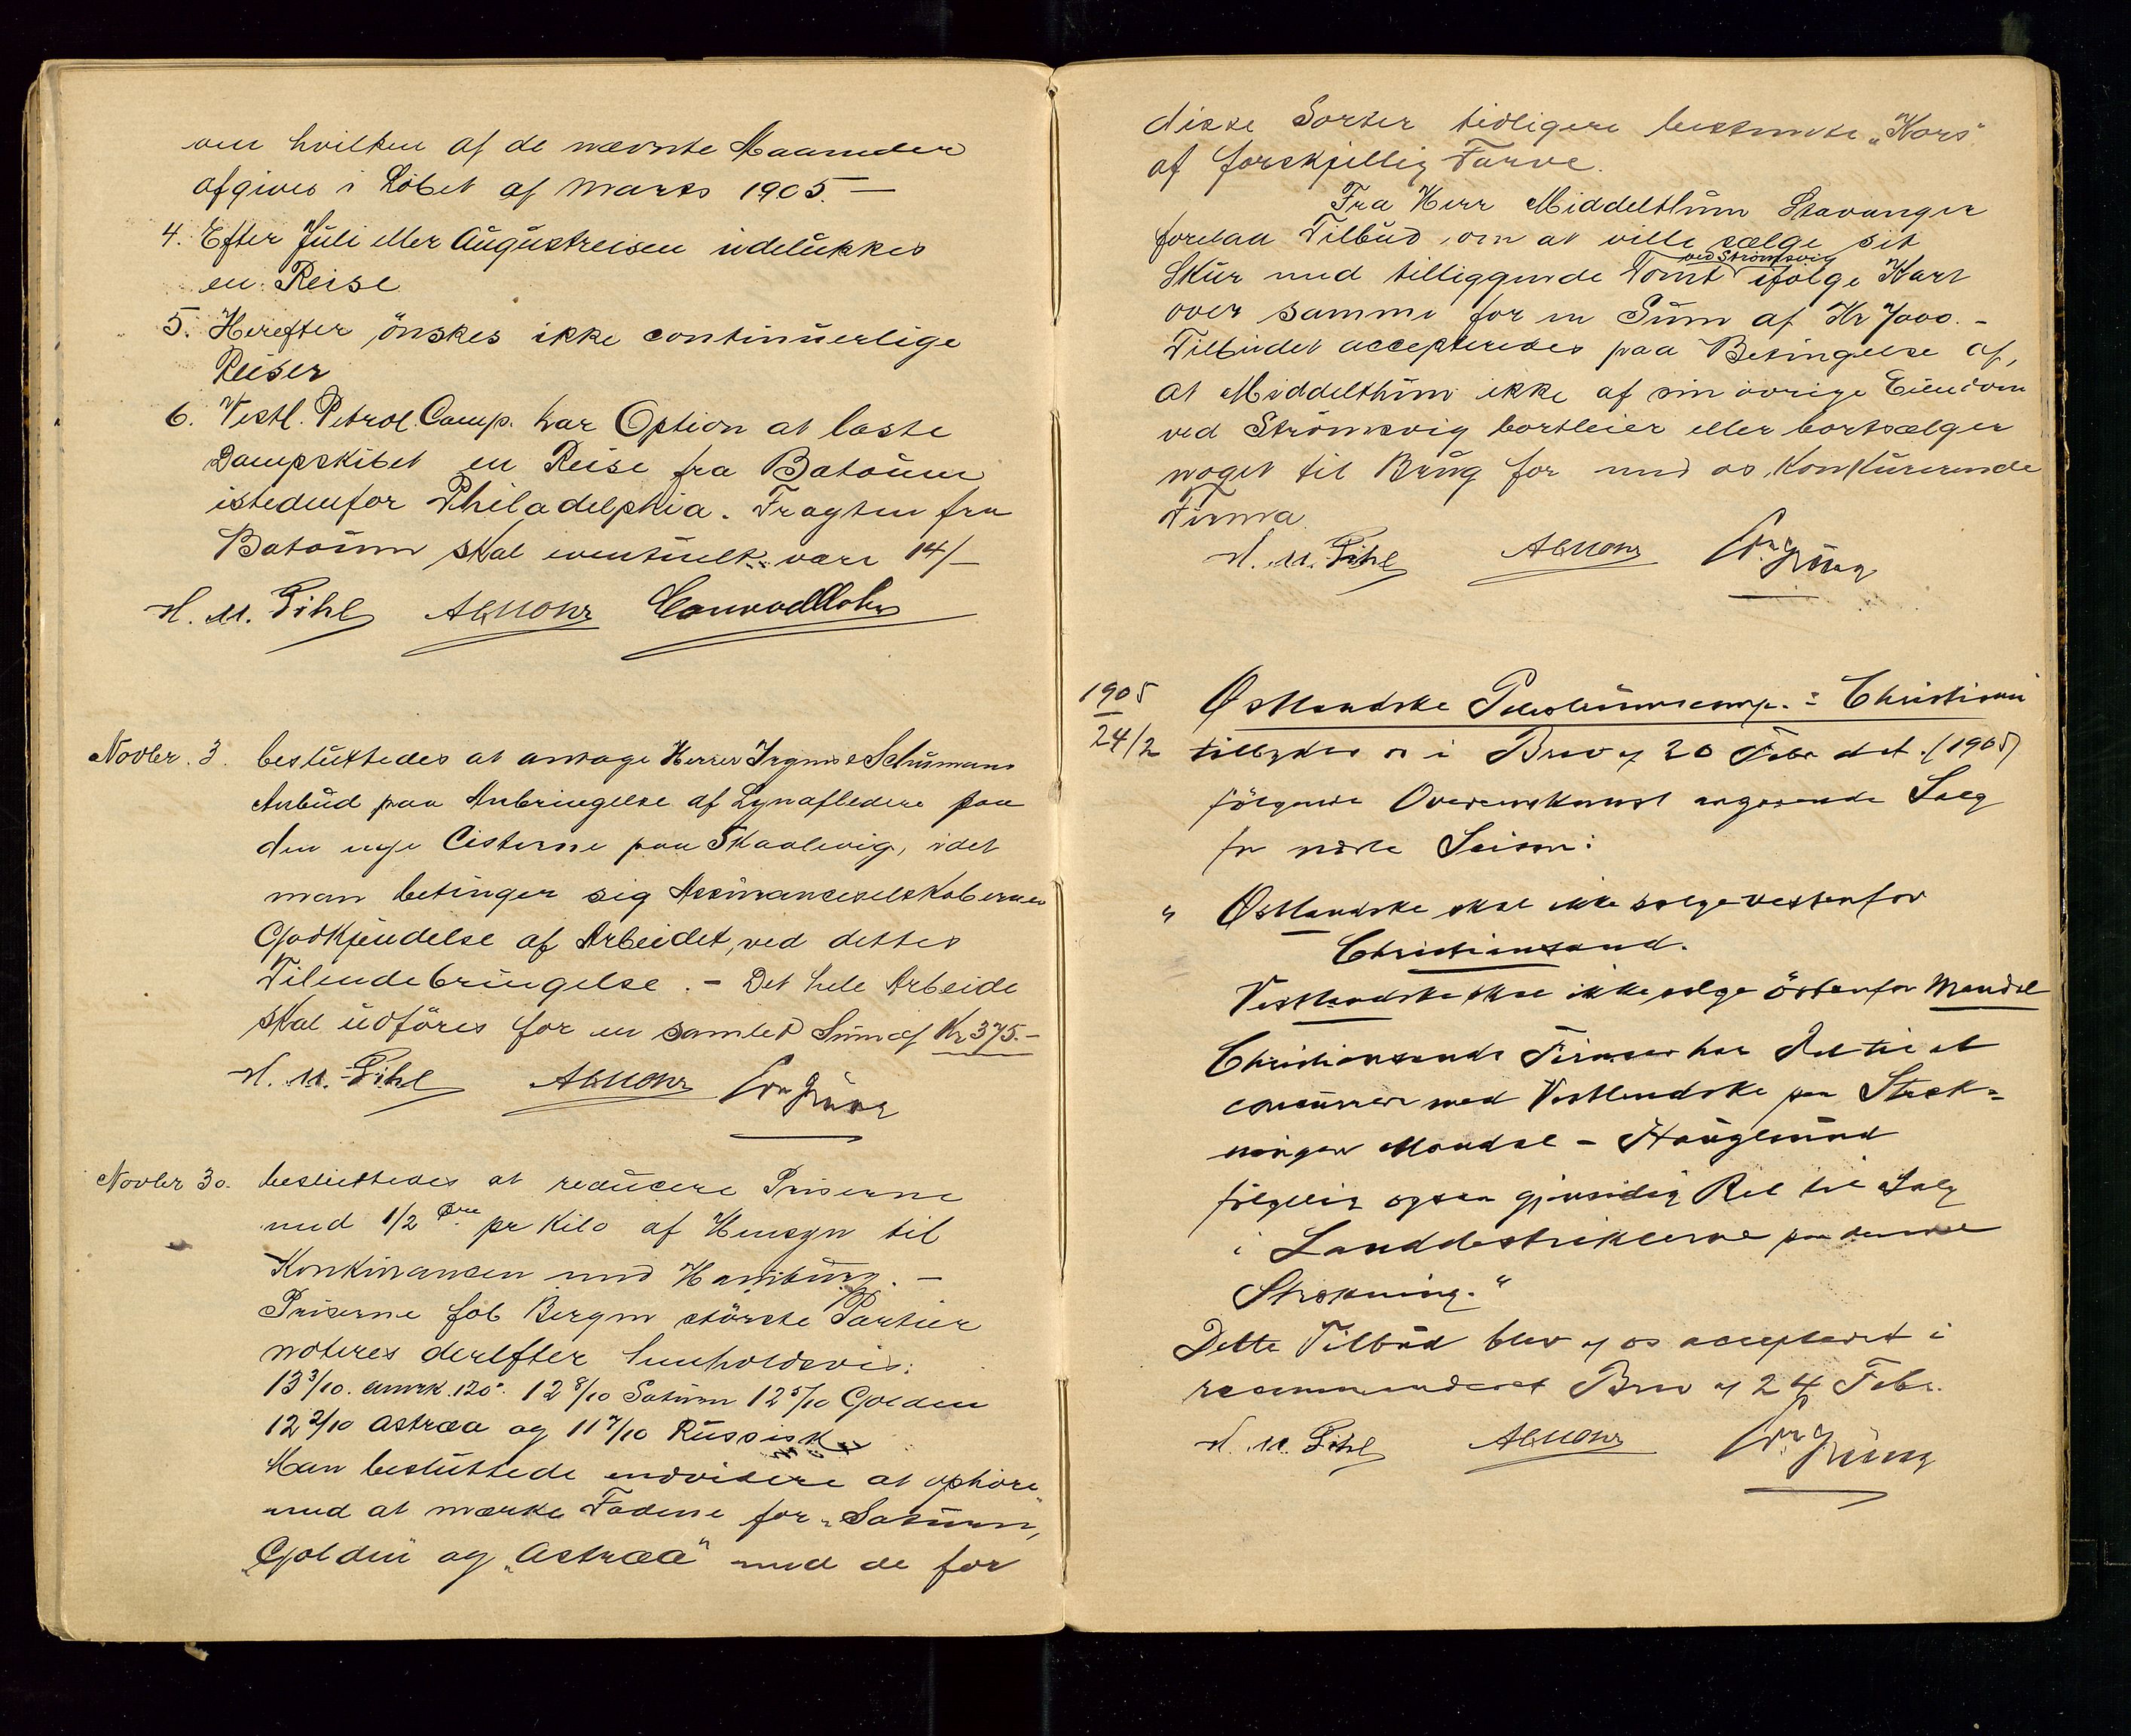 om hvilken af de nævnte Maaneder
afgives i Löbet af Marts 1905. —
4. Efter Juli eller Augustreisen udelukkes
en Reise
5. Herefter önskes ikke continuerlige
Reiser
6. Vestl. Petrol. Comp. har Option at laste
Dampskibet en Reise fra Batoum
istedenfor Philadelphia. Fragten fra
Batoum skal eventuelt være 14/-
H. M. Gihl
Novbr. 3. besluttedes at antage Herrer & Schumans
Anbud paa Anbringelse af Lynafledere paa
den nye Cisterne paa Skaalevig, idet
man betinger sig Assuranceselskabernes
Godkjendelse af Arbeidet, ved dettes
Tilendebringelse. – Det hele Arbeide
skal udföres for en samlet Sum af Kr 375.–
H. M. Gihl
Novbr 30. besluttedes at reducere Priserne
med 1/2 Øre pr Kilo af Hensyn til
Konkurransen med Hamburg. —
Priserne fob Bergen störste Partier
noteres derefter henholdsvis:
13 3/10. amrk. 120°. 12 8/10 Saturn 12 5/10 Golden
12 2/10 Astræa og 11 7/10 Russisk
Man besluttede endvidere at ophöre
med at mærke Fadene for „Saturn,
„Golden og „Astræa" med de for
disse Sorter tidligere bestemte „Kors"
af forskjellig Farve.
Fra Herr Middelthum Stavanger
forelaa Tilbud, om at ville sælge sit
ved Strömsvig
Skur med tilliggende Tomt ifölge Kart
over samme for en Sum af Kr 7000.–
Tilbudet accepteredes paa Betingelse af,
at Middelthum ikke af sin övrige Eiendom
ved Strömsvig bortleier eller bortsælger
noget til Brug for med os Konkurerende
Firma.
H. M. Gihl
1905
24/2
Østlandske Petroleumscomp. : Christiania
tilbyder os i Brev af 20 Febr det. (1905)
fölgende Overenskomst angaaende Salg
for næste Saison:
„ Østlandske skal ikke sælge vestenfor
Christianssand.
Vestlandske skal ikke sælge östenfor Mandal
Christianssands Firmaer har Ret til at
concurrere med Vestlandske paa Stræk=
ningen Mandal – Haugesund
fölgelig ogsaa gjensidig Ret til Salg
i Landdistrikterne paa denne
Strækning."
Dette Tilbud blev af os accepteret i
recommanderet Brev af 24 Febr.
H. M. Gihl